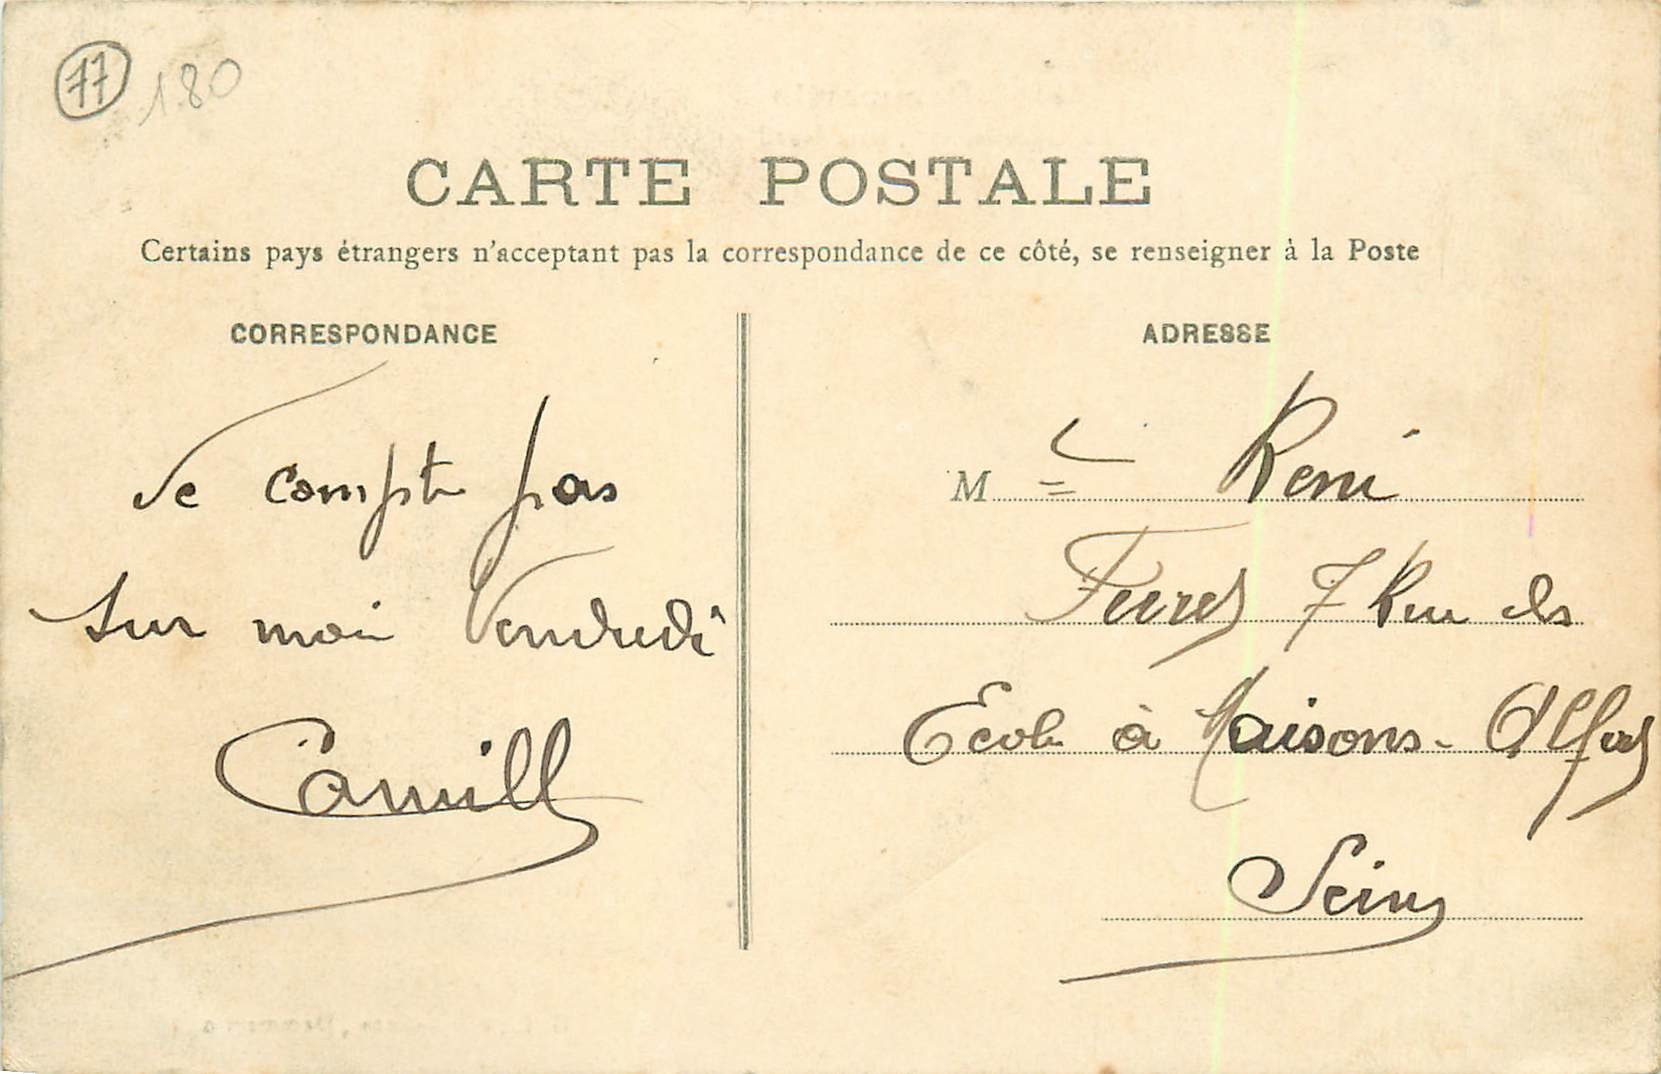 77 180
CARTE POSTALE
Certains pays étrangers n'acceptant pas la correspondance de ce côté, se renseigner à la Poste
CORRESPONDANCE
Ne compte pas
sur moi Vendredi
Camille
ADRESSE
M René
7 Rue des
Ecole à Maisons-Alfort
Seine